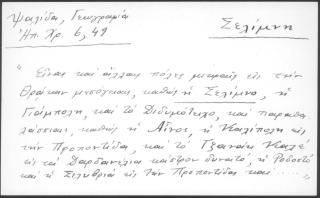 Ψαλίδα, Γεωγραφία
Ἠπ. Χρ. 6, 49
Σελίμνη
"Εἶναι καὶ ἄλλαι πόλεις μικραὶ εἰς τὴν
Θράκην μεσόγειαι, καθὼς ἡ Σελίμνο, ἡ
Γιάμπολη, καὶ τὸ Διδυμότειχο, καὶ παραθα-
λάσσιαι, καθὼς ἡ Αἶνος, ἡ Καλίπολη εἰς
τὴν Προποντίδα, καὶ τὸ Τζανὰκ Καλὲ
εἰς τὰ Δαρδανέλια κάστρον δυνατό, ἡ Ροδοστὸ
καὶ ἡ Σιλυβρία εἰς τὴν Προποντίδα καὶ ....."